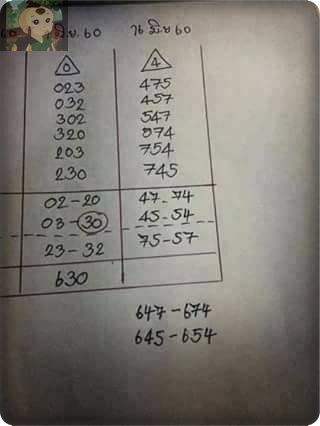 60 มิ.ย. 60 มิ.ย 60
0 4
023 475
032 457
302 547
320 574
203 754
230 745
02-20 47-74
03-30 45-54
23-32 75-57
630
647-674
645-654